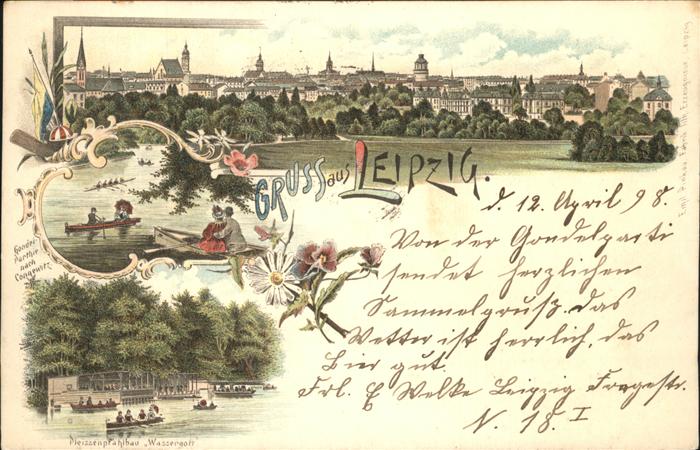 GRUSS aus LEIPZIG.
d. 12. April 98.
Von der Gondelparti
sendet herzlichen
Sammelgruß. das
Wetter ist herrlich, das
Bier gut.
Frl. E Welke Leipzig
N. 18. I
Gondel-
Parthie
nach
Connewitz
Pleissenpfahlbau „Wassergott"